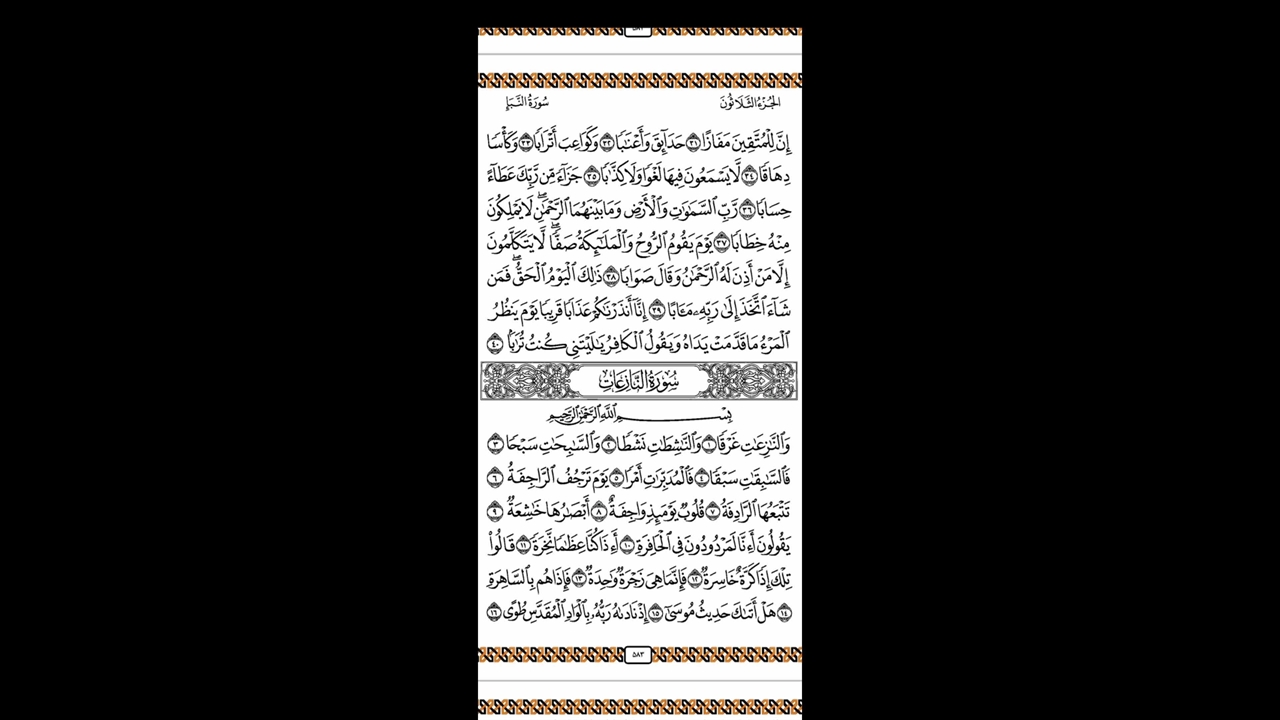 الجزء الثلاثون
سورة النبإ
إِنَّ لِلْمُتَّقِينَ مَفَازًا ٣١ حَدَآئِقَ وَأَعْنَٰبًا ٣٢ وَكَوَاعِبَ أَتْرَابًا ٣٣ وَكَأْسًا
دِهَاقًا ٣٤ لَّا يَسْمَعُونَ فِيهَا لَغْوًا وَلَا كِذَّٰبًا ٣٥ جَزَآءً مِّن رَّبِّكَ عَطَآءً
حِسَابًا ٣٦ رَّبِّ السَّمَٰوَٰتِ وَالْأَرْضِ وَمَا بَيْنَهُمَا الرَّحْمَٰنِۖ لَا يَمْلِكُونَ
مِنْهُ خِطَابًا ٣٧ يَوْمَ يَقُومُ الرُّوحُ وَالْمَلَٰٓئِكَةُ صَفًّاۖ لَّا يَتَكَلَّمُونَ
إِلَّا مَنْ أَذِنَ لَهُ الرَّحْمَٰنُ وَقَالَ صَوَابًا ٣٨ ذَٰلِكَ الْيَوْمُ الْحَقُّۖ فَمَن
شَآءَ اتَّخَذَ إِلَىٰ رَبِّهِۦ مَـَٔابًا ٣٩ إِنَّآ أَنذَرْنَٰكُمْ عَذَابًا قَرِيبًا يَوْمَ يَنظُرُ
الْمَرْءُ مَا قَدَّمَتْ يَدَاهُ وَيَقُولُ الْكَافِرُ يَٰلَيْتَنِي كُنتُ تُرَٰبًا ٤٠
سُورَةُ النَّازِعَاتِ
بِسْمِ اللَّهِ الرَّحْمَٰنِ الرَّحِيمِ
وَالنَّٰزِعَٰتِ غَرْقًا ١ وَالنَّٰشِطَٰتِ نَشْطًا ٢ وَالسَّٰبِحَٰتِ سَبْحًا ٣
فَالسَّٰبِقَٰتِ سَبْقًا ٤ فَالْمُدَبِّرَٰتِ أَمْرًا ٥ يَوْمَ تَرْجُفُ الرَّاجِفَةُ ٦
تَتْبَعُهَا الرَّادِفَةُ ٧ قُلُوبٌ يَوْمَئِذٍ وَاجِفَةٌ ٨ أَبْصَٰرُهَا خَٰشِعَةٌ ٩
يَقُولُونَ أَءِنَّا لَمَرْدُودُونَ فِي الْحَافِرَةِ ١٠ أَءِذَا كُنَّا عِظَٰمًا نَّخِرَةً ١١ قَالُوا۟
تِلْكَ إِذًا كَرَّةٌ خَاسِرَةٌ ١٢ فَإِنَّمَا هِيَ زَجْرَةٌ وَٰحِدَةٌ ١٣ فَإِذَا هُم بِالسَّاهِرَةِ
١٤ هَلْ أَتَىٰكَ حَدِيثُ مُوسَىٰٓ ١٥ إِذْ نَادَىٰهُ رَبُّهُۥ بِالْوَادِ الْمُقَدَّسِ طُوًى ١٦
٥٨٣